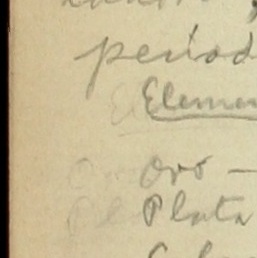 period
Elemen
Oro —
Plata